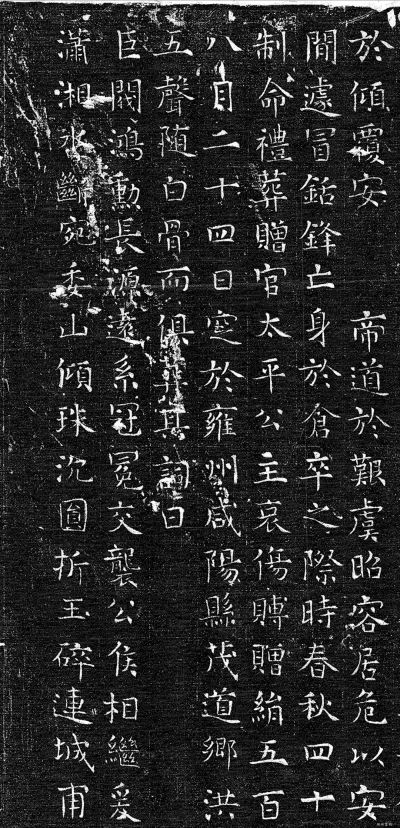 於傾覆安　帝道於艱虞昭容居危以安
間遽冒銛鋒亡身於倉卒之際時春秋四十
制命禮葬贈官太平公主哀傷賻贈絹五百
八月二十四日窆於雍州咸陽縣茂道鄉洪
五聲随白骨而俱葬其詞曰
巨閥鴻勳長源遠系冠冕交襲公侯相繼爰
瀟湘水斷宛委山傾珠沉圓折玉碎連城甫